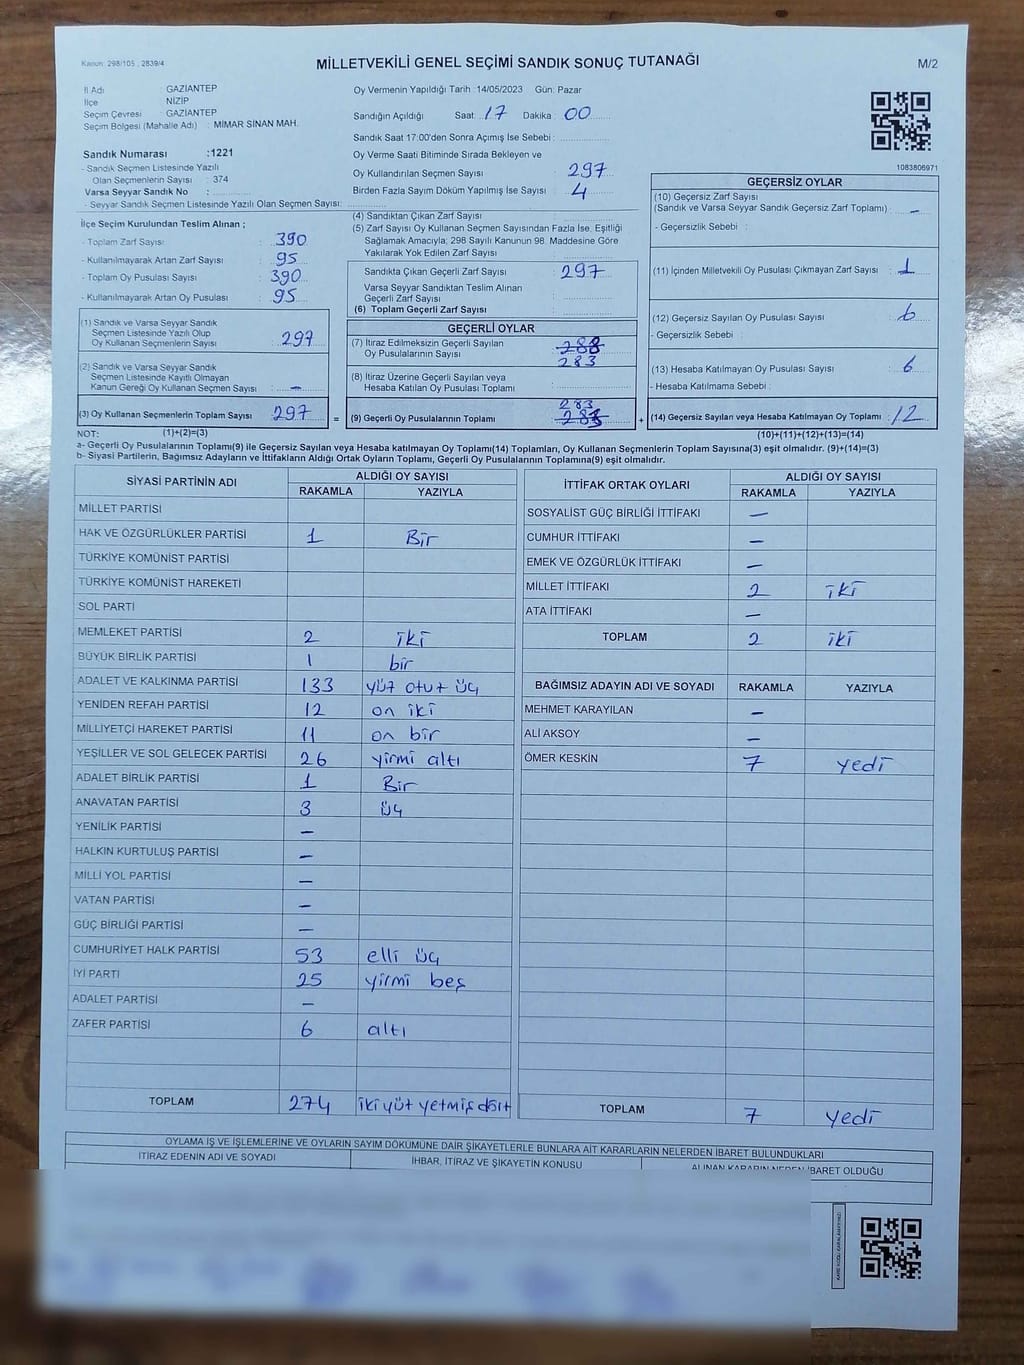 Kanun: 298/105 , 2839/4
MİLLETVEKİLİ GENEL SEÇİMİ SANDIK SONUÇ TUTANAĞI
M/2
İl Adı : GAZİANTEP
İlçe : NİZİP
Seçim Çevresi : GAZİANTEP
Seçim Bölgesi (Mahalle Adı) : MİMAR SİNAN MAH.
Sandık Numarası :1221
- Sandık Seçmen Listesinde Yazılı
Olan Seçmenlerin Sayısı : 374
Varsa Seyyar Sandık No :
- Seyyar Sandık Seçmen Listesinde Yazılı Olan Seçmen Sayısı:
Oy Vermenin Yapıldığı Tarih :14/05/2023 Gün: Pazar
Sandığın Açıldığı Saat : 17 Dakika : 00
Sandık Saat 17:00'den Sonra Açımış İse Sebebi :
Oy Verme Saati Bitiminde Sırada Bekleyen ve
Oy Kullandırılan Seçmen Sayısı : 297
Birden Fazla Sayım Döküm Yapılmış İse Sayısı : 4
1083806971
İlçe Seçim Kurulundan Teslim Alınan ;
- Toplam Zarf Sayısı : 390
- Kullanılmayarak Artan Zarf Sayısı : 95
- Toplam Oy Pusulası Sayısı : 390
- Kullanılmayarak Artan Oy Pusulası : 95
(1) Sandık ve Varsa Seyyar Sandık
Seçmen Listesinde Yazılı Olup
Oy Kullanan Seçmenlerin Sayısı : 297
(2) Sandık ve Varsa Seyyar Sandık
Seçmen Listesinde Kayıtlı Olmayan
Kanun Gereği Oy Kullanan Seçmen Sayısı : –
(3) Oy Kullanan Seçmenlerin Toplam Sayısı : 297
(4) Sandıktan Çıkan Zarf Sayısı :
(5) Zarf Sayısı Oy Kullanan Seçmen Sayısından Fazla İse, Eşitliği
Sağlamak Amacıyla; 298 Sayılı Kanunun 98. Maddesine Göre
Yakılarak Yok Edilen Zarf Sayısı :
Sandıkta Çıkan Geçerli Zarf Sayısı : 297
Varsa Seyyar Sandıktan Teslim Alınan
Geçerli Zarf Sayısı :
(6) Toplam Geçerli Zarf Sayısı :
GEÇERLİ OYLAR
(7) İtiraz Edilmeksizin Geçerli Sayılan : 288
Oy Pusulalarının Sayısı 283
(8) İtiraz Üzerine Geçerli Sayılan veya
Hesaba Katılan Oy Pusulası Toplamı :
283
= (9) Geçerli Oy Pusulalarının Toplamı :
GEÇERSİZ OYLAR
(10) Geçersiz Zarf Sayısı
(Sandık ve Varsa Seyyar Sandık Geçersiz Zarf Toplamı) : –
- Geçersizlik Sebebi :
(11) İçinden Milletvekili Oy Pusulası Çıkmayan Zarf Sayısı : 1
(12) Geçersiz Sayılan Oy Pusulası Sayısı : 6
- Geçersizlik Sebebi :
(13) Hesaba Katılmayan Oy Pusulası Sayısı : 6
- Hesaba Katılmama Sebebi :
+ (14) Geçersiz Sayılan veya Hesaba Katılmayan Oy Toplamı : 12
NOT: (1)+(2)=(3)
(10)+(11)+(12)+(13)=(14)
a- Geçerli Oy Pusulalarının Toplamı(9) ile Geçersiz Sayılan veya Hesaba katılmayan Oy Toplamı(14) Toplamları, Oy Kullanan Seçmenlerin Toplam Sayısına(3) eşit olmalıdır. (9)+(14)=(3)
b- Siyasi Partilerin, Bağımsız Adayların ve İttifakların Aldığı Ortak Oyların Toplamı, Geçerli Oy Pusulalarının Toplamına(9) eşit olmalıdır.
SİYASİ PARTİNİN ADI ALDIĞI OY SAYISI
RAKAMLA YAZIYLA
MİLLET PARTİSİ
HAK VE ÖZGÜRLÜKLER PARTİSİ 1 Bir
TÜRKİYE KOMÜNİST PARTİSİ
TÜRKİYE KOMÜNİST HAREKETİ
SOL PARTİ
MEMLEKET PARTİSİ 2 iki
BÜYÜK BİRLİK PARTİSİ 1 bir
ADALET VE KALKINMA PARTİSİ 133 yüz otuz üç
YENİDEN REFAH PARTİSİ 12 on iki
MİLLİYETÇİ HAREKET PARTİSİ 11 on bir
YEŞİLLER VE SOL GELECEK PARTİSİ 26 yirmi altı
ADALET BİRLİK PARTİSİ 1 Bir
ANAVATAN PARTİSİ 3 üç
YENİLİK PARTİSİ –
HALKIN KURTULUŞ PARTİSİ –
MİLLİ YOL PARTİSİ –
VATAN PARTİSİ –
GÜÇ BİRLİĞİ PARTİSİ –
CUMHURİYET HALK PARTİSİ 53 elli üç
İYİ PARTİ 25 yirmi beş
ADALET PARTİSİ –
ZAFER PARTİSİ 6 altı
TOPLAM 274 iki yüz yetmiş dört
İTTİFAK ORTAK OYLARI ALDIĞI OY SAYISI
RAKAMLA YAZIYLA
SOSYALİST GÜÇ BİRLİĞİ İTTİFAKI –
CUMHUR İTTİFAKI –
EMEK VE ÖZGÜRLÜK İTTİFAKI –
MİLLET İTTİFAKI 2 iki
ATA İTTİFAKI –
TOPLAM 2 iki
BAĞIMSIZ ADAYIN ADI VE SOYADI RAKAMLA YAZIYLA
MEHMET KARAYILAN –
ALİ AKSOY –
ÖMER KESKİN 7 yedi
TOPLAM 7 yedi
OYLAMA İŞ VE İŞLEMLERİNE VE OYLARIN SAYIM DÖKÜMÜNE DAİR ŞİKAYETLERLE BUNLARA AİT KARARLARIN NELERDEN İBARET BULUNDUKLARI
İTİRAZ EDENİN ADI VE SOYADI İHBAR, İTİRAZ VE ŞİKAYETİN KONUSU ALINAN KARARIN NEDEN İBARET OLDUĞU